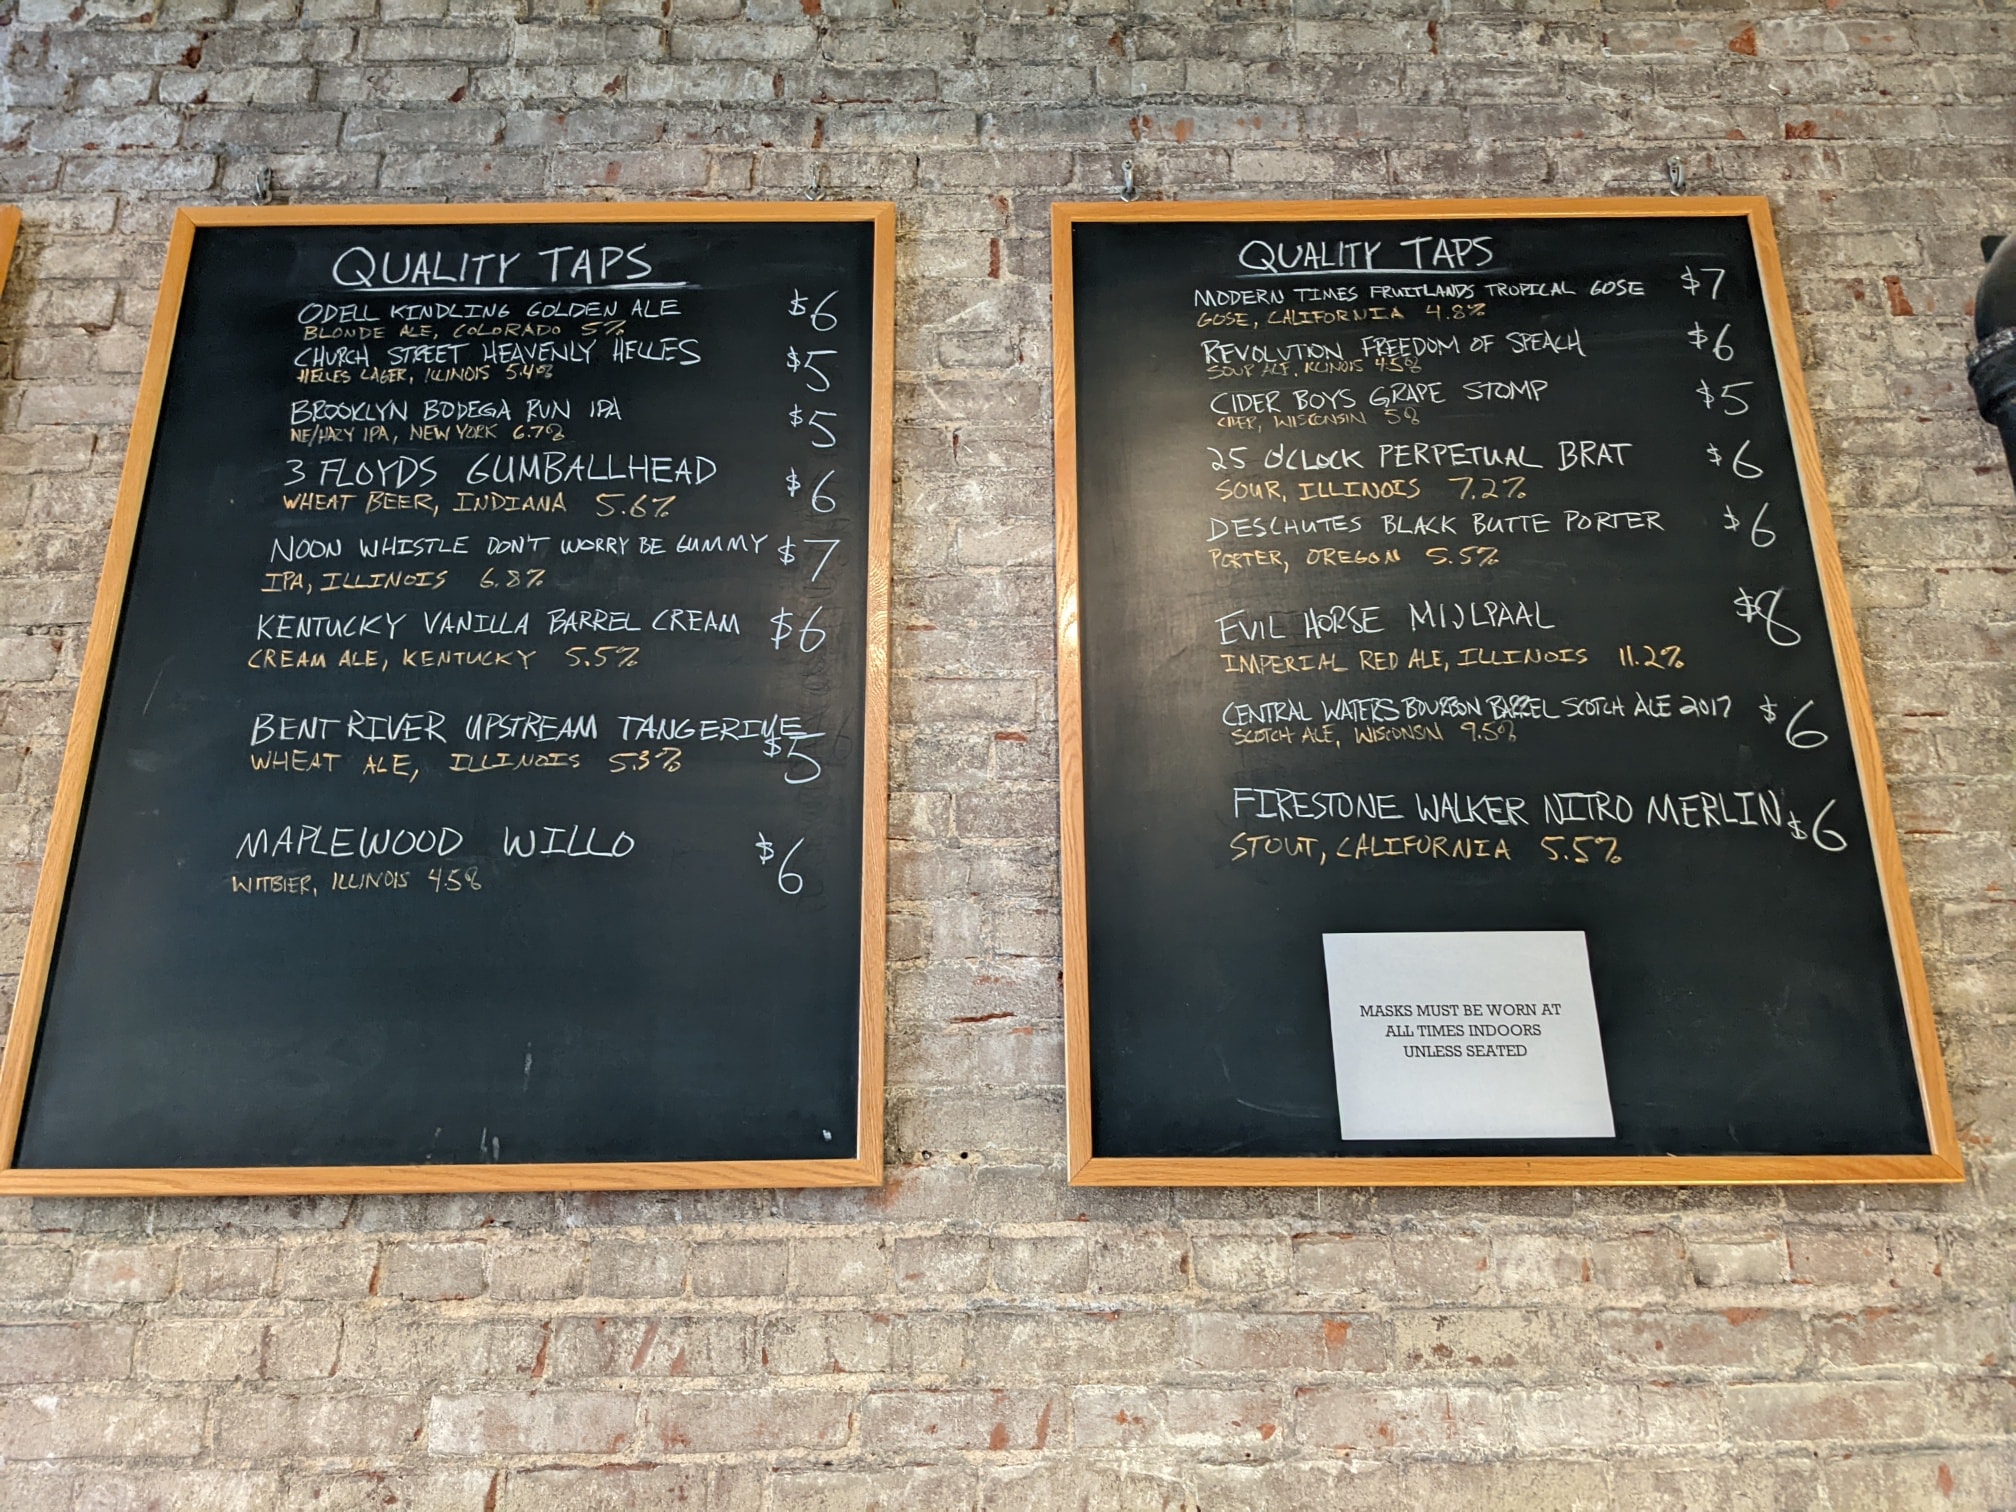 QUALITY TAPS
ODELL KINDLING GOLDEN ALE $6
BLONDE ALE, COLORADO 5%
CHURCH STREET HEAVENLY HELLES $5
HELLES LAGER, ILLINOIS 5.4%
BROOKLYN BODEGA RUN IPA $5
NE/HAZY IPA, NEW YORK 6.7%
3 FLOYDS GUMBALLHEAD $6
WHEAT BEER, INDIANA 5.6%
NOON WHISTLE DON'T WORRY BE GUMMY $7
IPA, ILLINOIS 6.8%
KENTUCKY VANILLA BARREL CREAM $6
CREAM ALE, KENTUCKY 5.5%
BENT RIVER UPSTREAM TANGERINE $5
WHEAT ALE, ILLINOIS 5.3%
MAPLEWOOD WILLO $6
WITBIER, ILLINOIS 4.5%
QUALITY TAPS
MODERN TIMES FRUITLANDS TROPICAL GOSE $7
GOSE, CALIFORNIA 4.8%
REVOLUTION FREEDOM OF SPEACH $6
SOUR ALE, ILLINOIS 4.5%
CIDER BOYS GRAPE STOMP $5
CIDER, WISCONSIN 5%
25 O'CLOCK PERPETUAL BRAT $6
SOUR, ILLINOIS 7.2%
DESCHUTES BLACK BUTTE PORTER $6
PORTER, OREGON 5.5%
EVIL HORSE MIJLPAAL $8
IMPERIAL RED ALE, ILLINOIS 11.2%
CENTRAL WATERS BOURBON BARREL SCOTCH ALE 2017 $6
SCOTCH ALE, WISCONSIN 9.5%
FIRESTONE WALKER NITRO MERLIN $6
STOUT, CALIFORNIA 5.5%
MASKS MUST BE WORN AT
ALL TIMES INDOORS
UNLESS SEATED